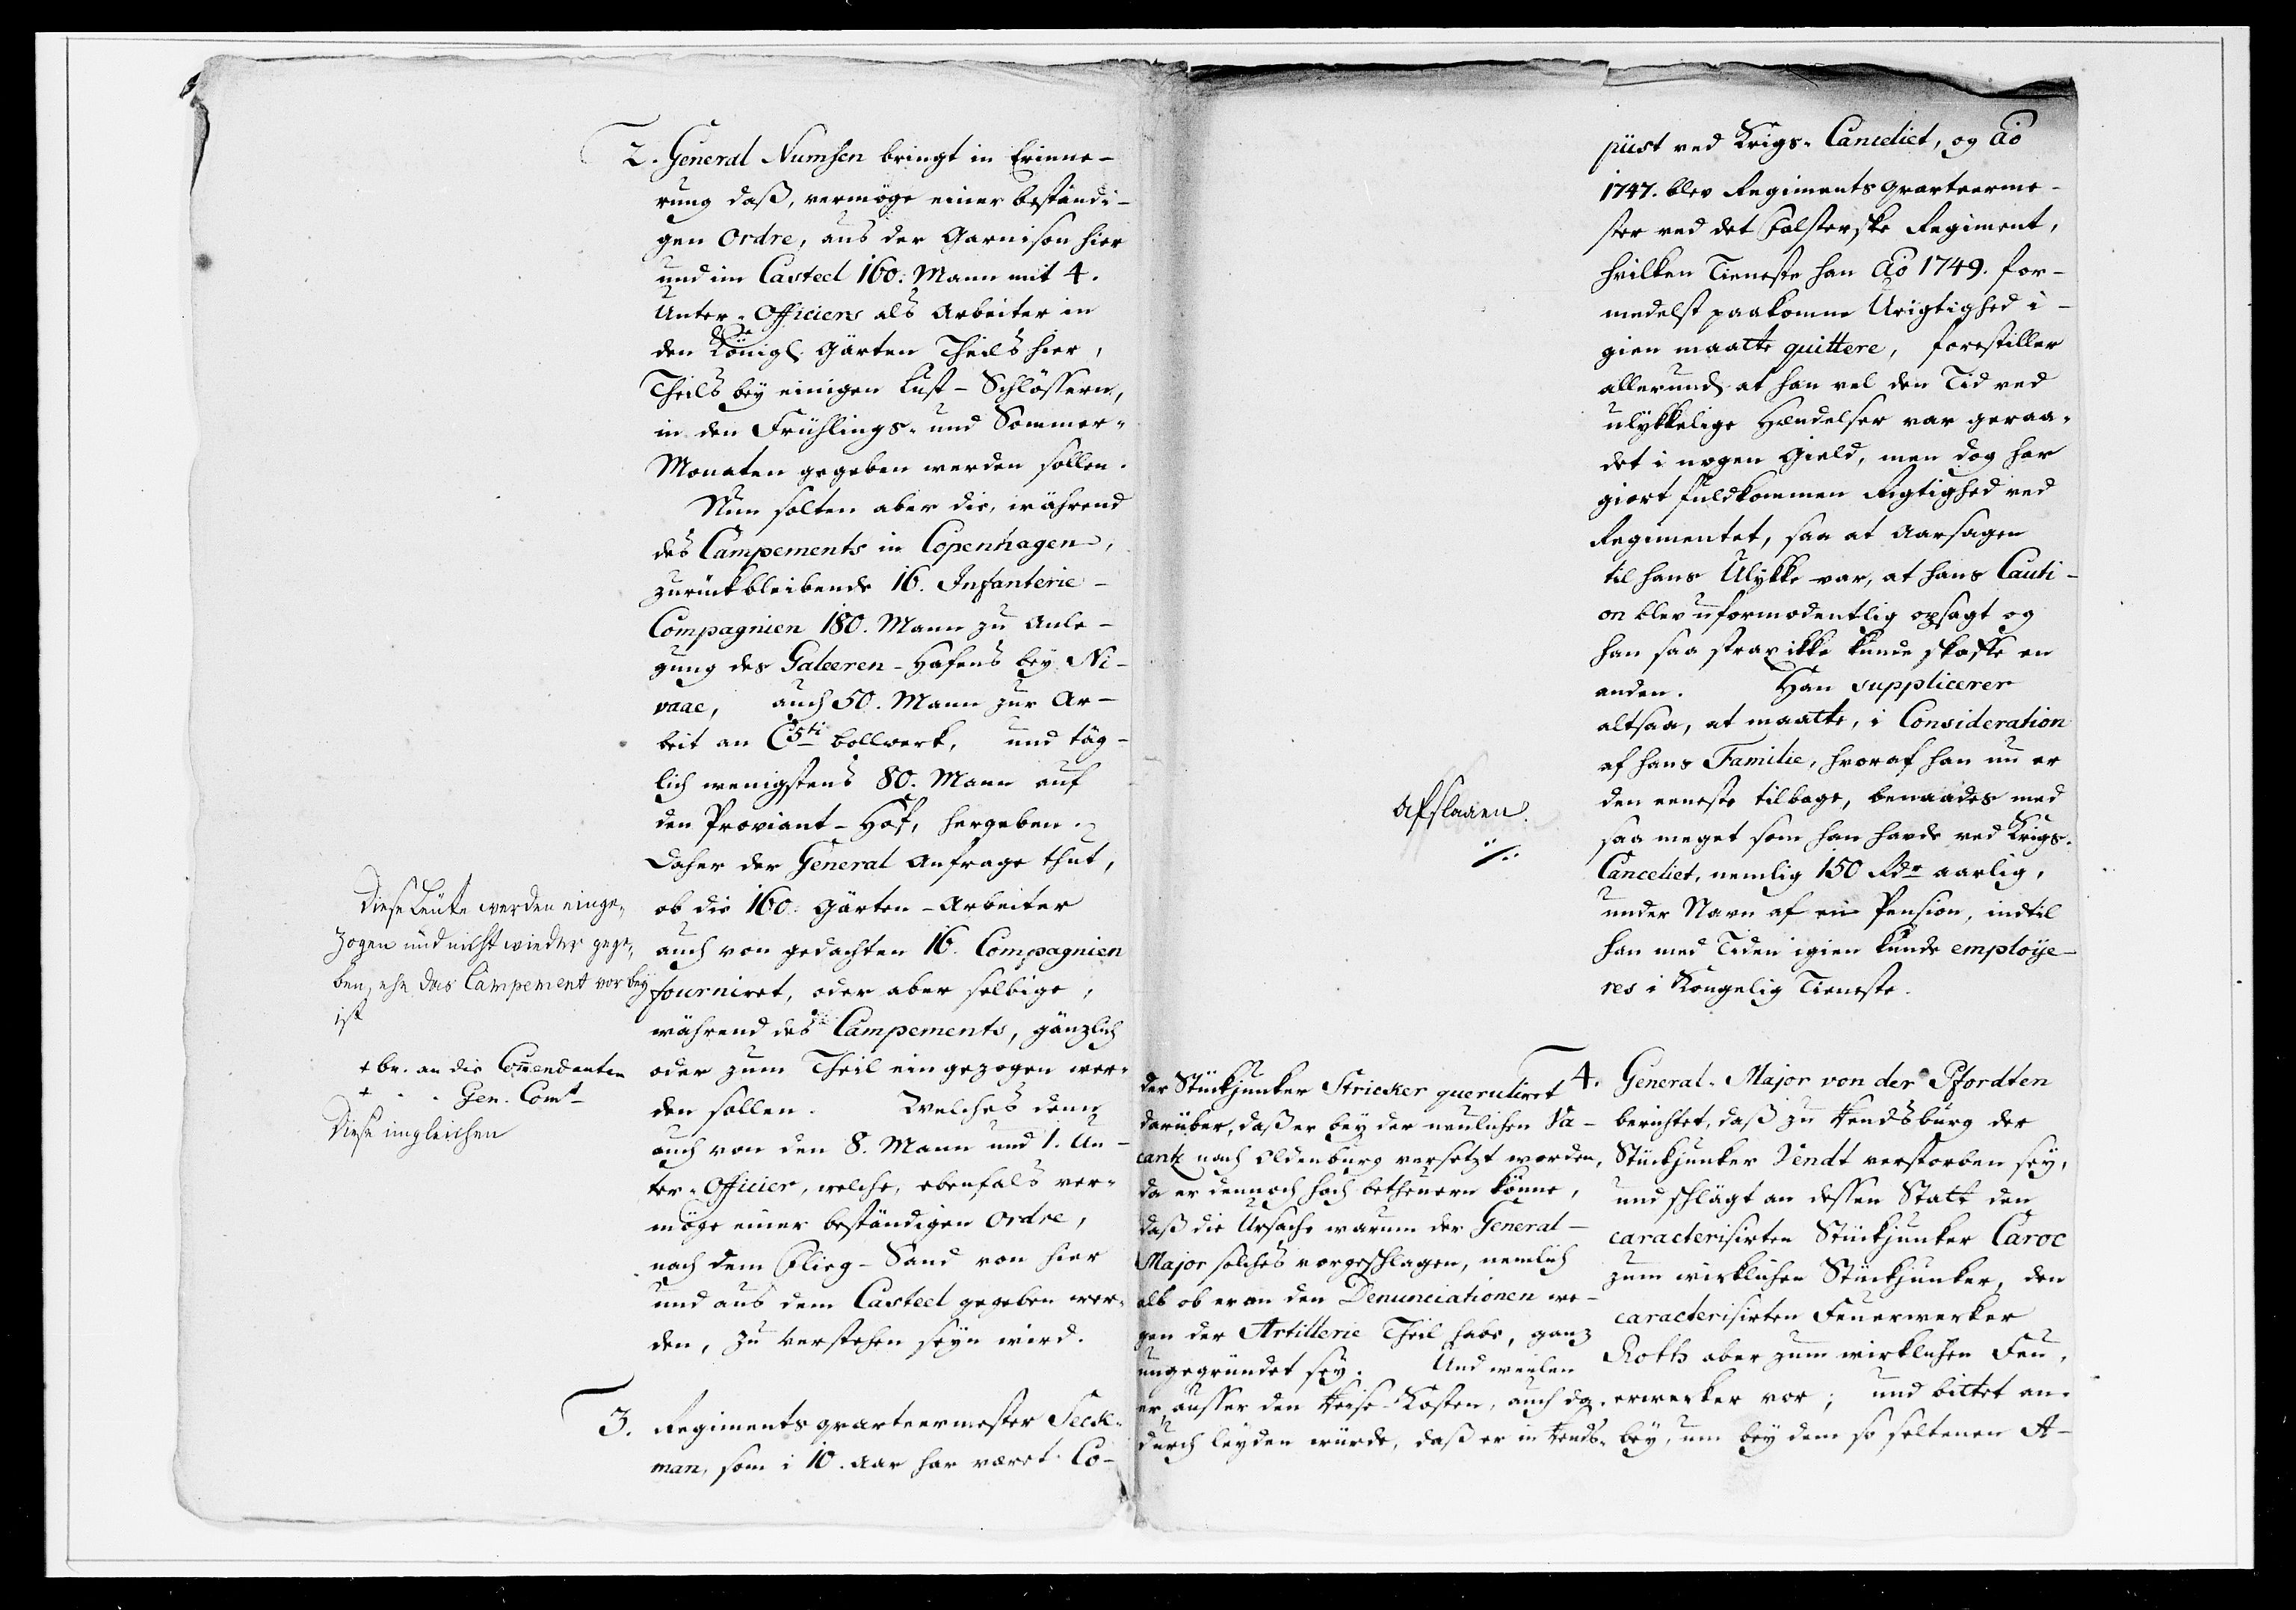 2. General Numsen bringt in Erinne-
rung daß, vermöge einer beständi-
gen Ordre, aus der Garnison hier
und im Casteel 160. Mann mit 4.
Unter-Officiers als Arbeiter in
den Königl. Gärten Theils hier,
Theils bey einigen Lust-Schlössern,
in den Frühlings- und Sommer-
Monaten gegeben werden sollen.
Nun solten aber die, während
des Campements in Copenhagen,
zurückbleibende 16. Infanterie-
Compagnien 180. Mann zu Anle-
gung des Galeeren-Hafens bey Ni-
vaae, auch 50. Mann zur Ar-
beit an C 5ti bollwerk, und täg-
lich wenigstens 80. Mann auf
den Proviant-Hof, hergeben.
Daher der General Anfrage thut,
ob die 160. Gärten-Arbeiter
auch von gedachten 16. Compagnien
fourniret, oder aber selbige,
während des Campements, gänzlich
oder zum Theil eingezogen wer-
den sollen. Welches denn
auch von den 8. Mann und 1. Un-
ter-Officier, welche, ebenfals ver-
möge einer beständigen Ordre,
nach dem Flieg-Sand von hier
und aus dem Casteel gegeben wer-
den, zu verstehen seyn wird.
Diese Leute werden einge-
zogen und nicht wieder gege-
ben, ehe das Campement vorbey
ist
+ br. an die Comendanten
+ - - Gen. Comt
Diese imgleichen
3. Regimentsqvarteermester Seck-
man, som i 10. Aar har været Co-
piist ved Krigs-Canceliet, og Ao
1747. blev Regimentsqvarteerme-
ster ved det Falsterske Regiment,
hvilken Tieneste han Ao 1749. for-
medelst paakomne Urigtighed i-
gien maatte quittere, forestiller
allerund. at han vel den Tid ved
ulykkelige Hændelser var geraa-
det i nogen Gield, men dog har
giort fuldkommen Rigtighed ved
Regimentet, saa at Aarsagen
til hans Ulykke var, at hans Cauti-
on blev uformodentlig opsagt og
han saa strax ikke kunde skaffe en
anden. Han supplicerer
altsaa, at maatte, i Consideration
af hans Familie, hvoraf han nu er
den eeneste tilbage, benaades med
saa meget som han havde ved Krigs-
Canceliet, nemlig 150 Rdr aarlig,
under Navn af en Pension, indtil
han med Tiden igien kunde employe-
res i Kongelig Tieneste.
Afslaaen.
4. General-Major von der Pfordten
berichtet, daß zu Rendsburg der
Stückjunker Vendt verstorben sey,
und schlägt an dessen Statt den
caracterisirten Stückjunker Caroc
zum wirklichen Stückjunker, den
caracterisirten Feuerwerker
Roth aber zum wirklichen Feu-
erwerker vor; und bittet an-
bey, um bey dem so seltenen A-
der Stückjunker Stricker querulirt
darüber, daß er bey der neulichen Va-
cantz nach Oldenburg versetzt worden,
da er dennoch hoch betheuern könne,
daß die Ursache warum der General-
Major solches vorgeschlagen, nemlich
als ob er an den Denunciationen we-
gen der Artillerie Theil habe, ganz
ungegründet sey. Und weilen
er ausser den Reise-Kosten, auch da-
durch leyden würde, daß er in Rends-